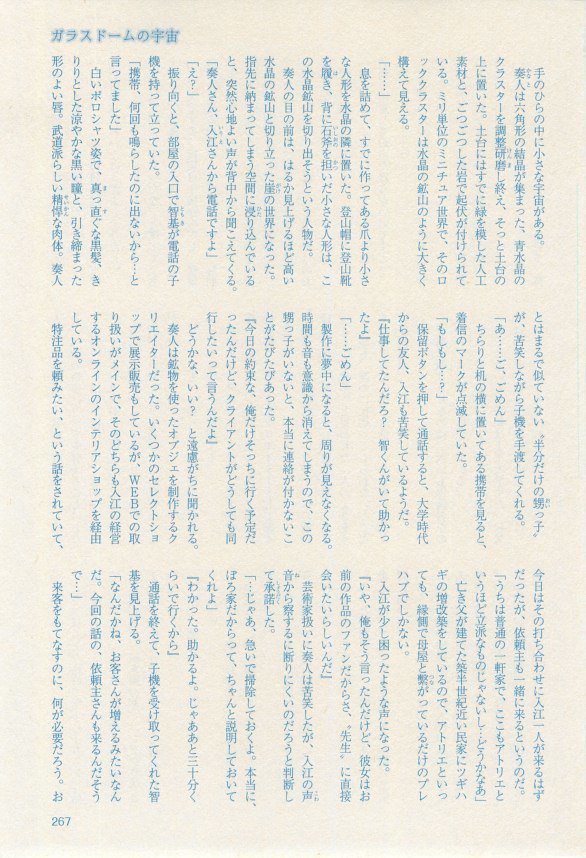 ガラスドームの宇宙
手のひらの中に小さな宇宙がある。
奏人は六角形の結晶が集まった、青水晶の
クラスターを調整研磨し終え、そっと土台の
上に置いた。土台にはすでに緑を模した人工
素材と、ごつごつした岩で起伏が付けられて
いる。ミリ単位のミニチュア世界で、そのロ
ッククラスターは水晶の鉱山のように大きく
構えて見える。
「……」
息を詰めて、すでに作ってある爪より小さ
な人形を水晶の隣に置いた。登山帽に登山靴
を履き、背に石斧を担いだ小さな人形は、こ
の水晶鉱山を切り出そうという人物だ。
奏人の目の前は、はるか見上げるほど高い
水晶の鉱山と切り立った崖の世界になった。
指先に納まってしまう空間に浸り込んでいる
と、突然心地よい声が背中から聞こえてくる。
「奏人さん、入江さんから電話ですよ」
「え？」
振り向くと、部屋の入口で智基が電話の子
機を持って立っていた。
「携帯、何回も鳴らしたのに出ないから…と
言ってました」
白いポロシャツ姿で、真っ直ぐな黒髪、き
りりとした涼やかな黒い瞳と、引き締まった
形のよい唇。武道派らしい精悍な肉体。奏人
とはまるで似ていない〝半分だけの甥っ子〟
が、苦笑しながら子機を手渡してくれる。
「あ……ご、ごめん」
ちらりと机の横に置いてある携帯を見ると、
着信のマークが点滅していた。
「もしもし…？」
保留ボタンを押して通話すると、大学時代
からの友人、入江も苦笑しているようだ。
『仕事してたんだろ？　智くんがいて助かっ
たよ』
「……ごめん」
製作に夢中になると、周りが見えなくなる。
時間も音も意識から消えてしまうので、この
甥っ子がいないと、本当に連絡が付かないこ
とがたびたびあった。
『今日の約束な、俺だけそっちに行く予定だ
ったんだけど、クライアントがどうしても同
行したいって言うんだよ』
どうかな、いい？　と遠慮がちに聞かれる。
奏人は鉱物を使ったオブジェを制作するク
リエイターだった。いくつかのセレクトショ
ップで展示販売もしているが、ＷＥＢでの取
り扱いがメインで、そのどちらも入江の経営
するオンラインのインテリアショップを経由
している。
特注品を頼みたい、という話をされていて、
今日はその打ち合わせに入江一人が来るはず
だったが、依頼主も一緒に来るというのだ。
「うちは普通の一軒家で、ここもアトリエと
いうほど立派なものじゃないし…どうかなあ」
亡き父が建てた築半世紀近い民家にツギハ
ギの増改築をしているので、アトリエといっ
ても、縁側で母屋と繋がっているだけのプレ
ハブでしかない。
入江が少し困ったような声になった。
『いや、俺もそう言ったんだけど、彼女はお
前の作品のファンだからさ、〝先生〟に直接
会いたいらしいんだ』
芸術家扱いに奏人は苦笑したが、入江の声
音から察するに断りにくいのだろうと判断し
て承諾した。
「…じゃあ、急いで掃除しておくよ。本当に、
ぼろ家だからって、ちゃんと説明しておいて
くれよ」
『わかった。助かるよ。じゃああと三十分く
らいで行くから』
通話を終えて、子機を受け取ってくれた智
基を見上げる。
「なんだかね、お客さんが増えるみたいなん
だ。今回の話の、依頼主さんも来るんだそう
で…」
来客をもてなすのに、何が必要だろう。お
267